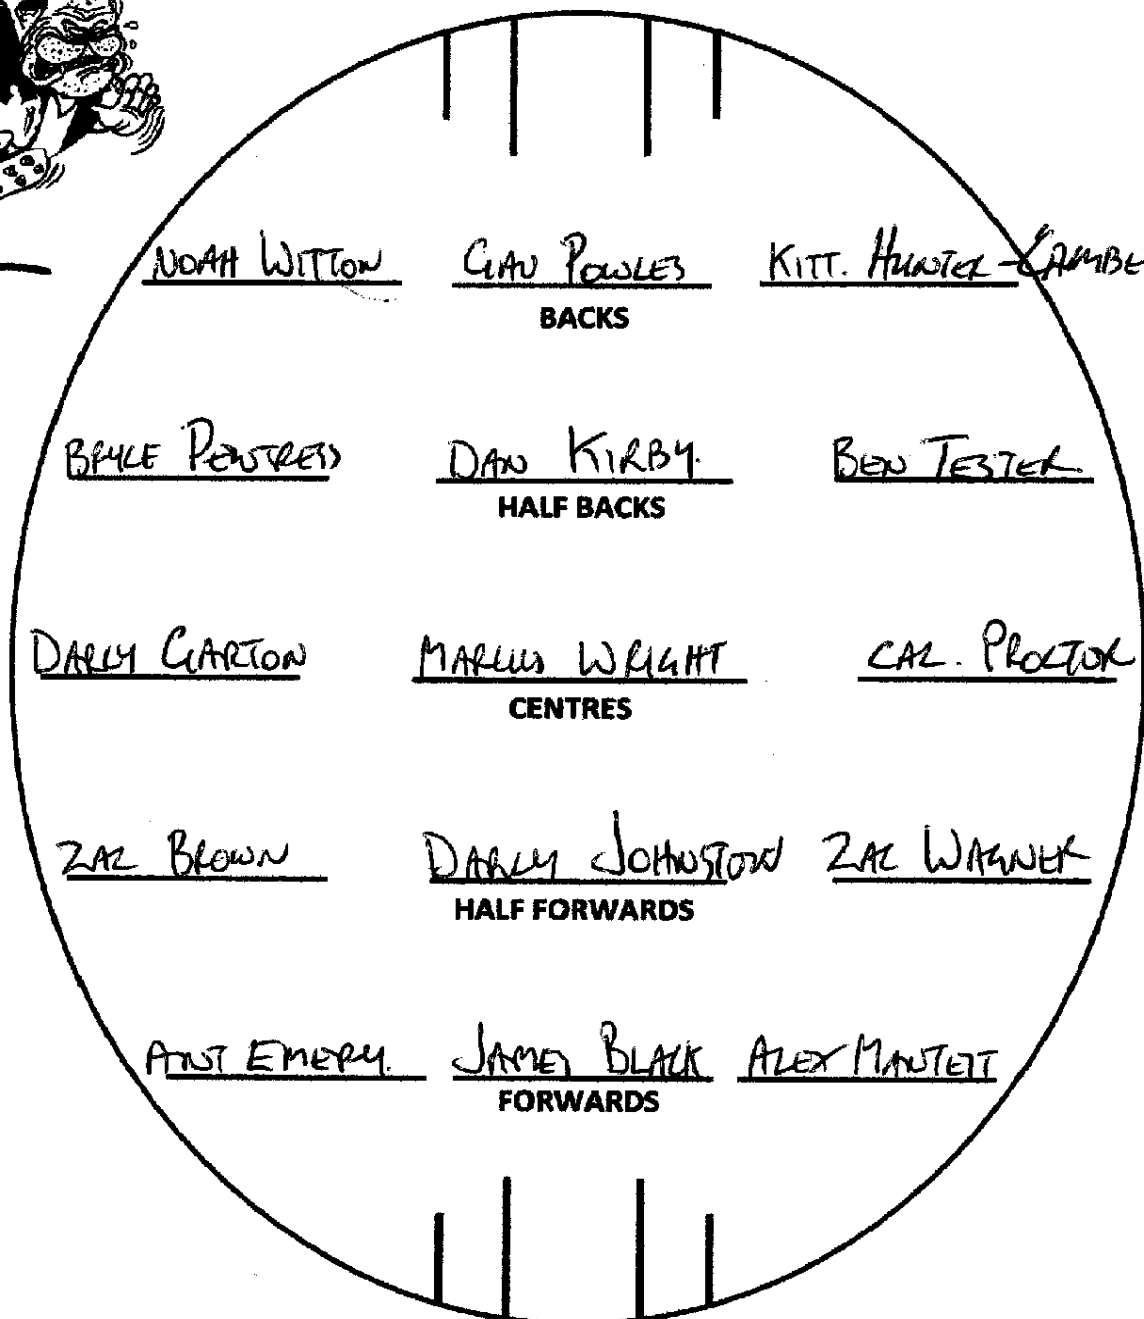 NOAH WITTON GAV POWLES KITT. HUNTER-CAMBE
BACKS
BRYCE PENTRETS DAN KIRBY. BEN TESTER
HALF BACKS
DARCY GARTON MARCUS WRIGHT CAL. PROCTOR
CENTRES
ZAC BROWN DARCY JOHNSTON ZAC WAGNER
HALF FORWARDS
ANT EMERY. JAMES BLACK ALEX MANTETT
FORWARDS